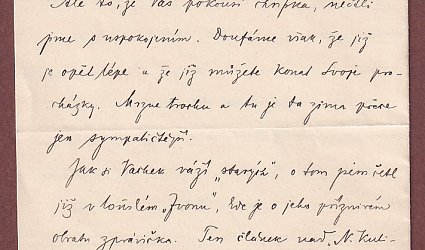 Ale to, že Vás pokouší chřipka, nečtli
jsme s uspokojením. Doufáme však, že již
je opět lépe a že již můžete konat svoje pro-
cházky. Mrzne trochu a tu je ta zima přece
jen sympatičtější.
Jak si Vachek váží „starých", o tom jsem četl
již v loňském „Zvonu", kde je o jeho příznivém
obratu zprávička. Ten článek nad „N. Kuti-